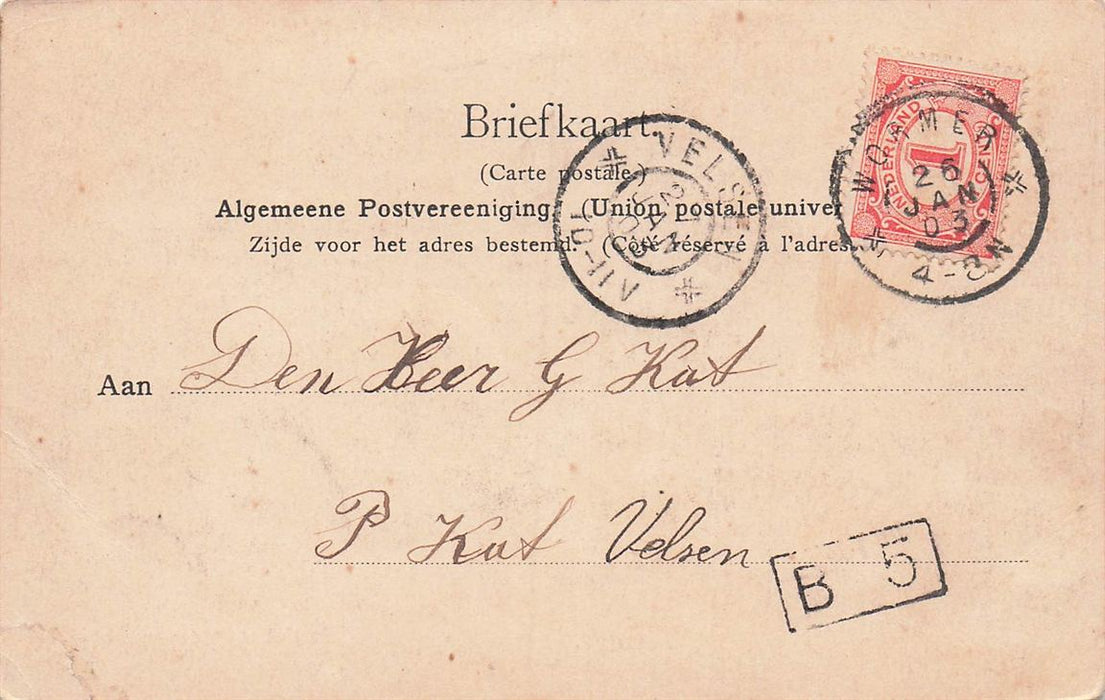 Briefkaart.
(Carte postale.)
Algemeene Postvereeniging. (Union postale univer
Zijde voor het adres bestemd. (Côté réservé à l'adres
NEDERLAND
1
CENT
WORMER
26
JAN
03
4-8N
VELSEN
27
JAN
03
VII-10
Aan Den Heer G Kat
P Kat Velsen
B 5